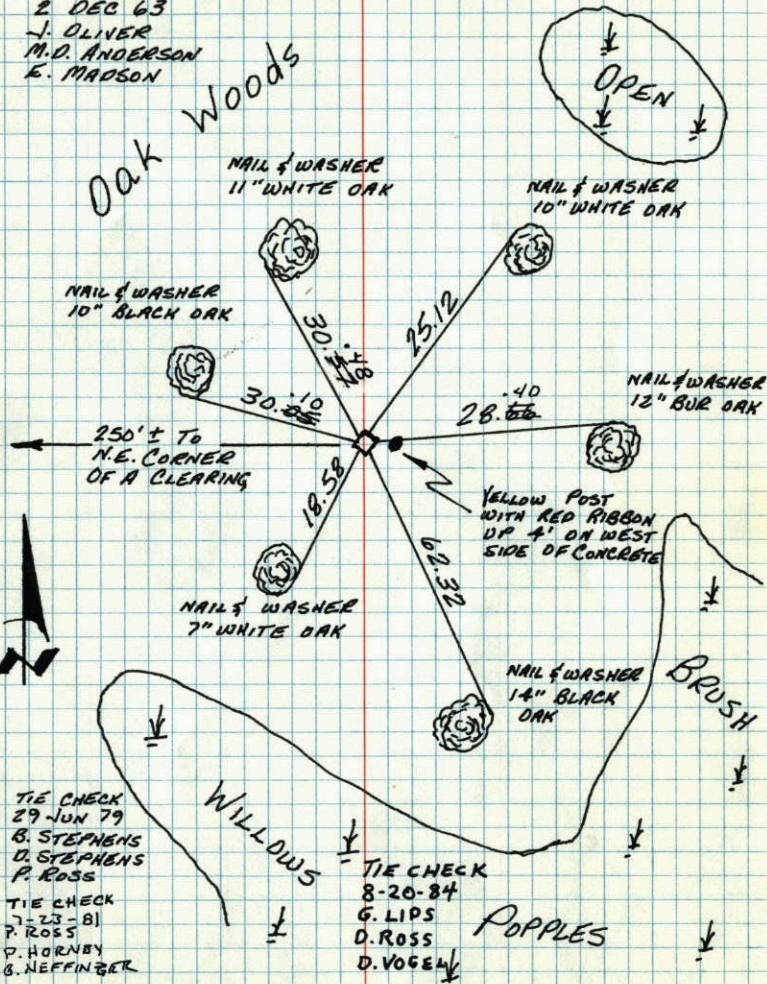 2 DEC 63
J. OLIVER
M.D. ANDERSON
E. MADSON
Oak Woods
OPEN
NAIL & WASHER
11" WHITE OAK
NAIL & WASHER
10" WHITE OAK
NAIL & WASHER
10" BLACK OAK
30.48
25.12
NAIL & WASHER
12" BUR OAK
30.10
28.40
250' ± TO
N.E. CORNER
OF A CLEARING
18.58
62.32
YELLOW POST
WITH RED RIBBON
UP 4' ON WEST
SIDE OF CONCRETE
NAIL & WASHER
7" WHITE OAK
N
NAIL & WASHER
14" BLACK
OAK
BRUSH
WILLOWS
POPPLES
TIE CHECK
29 JUN 79
B. STEPHENS
D. STEPHENS
P. ROSS
TIE CHECK
7-23-81
P. ROSS
P. HORNBY
B. NEFFINGER
TIE CHECK
8-20-84
G. LIPS
D. ROSS
D. VOGEL